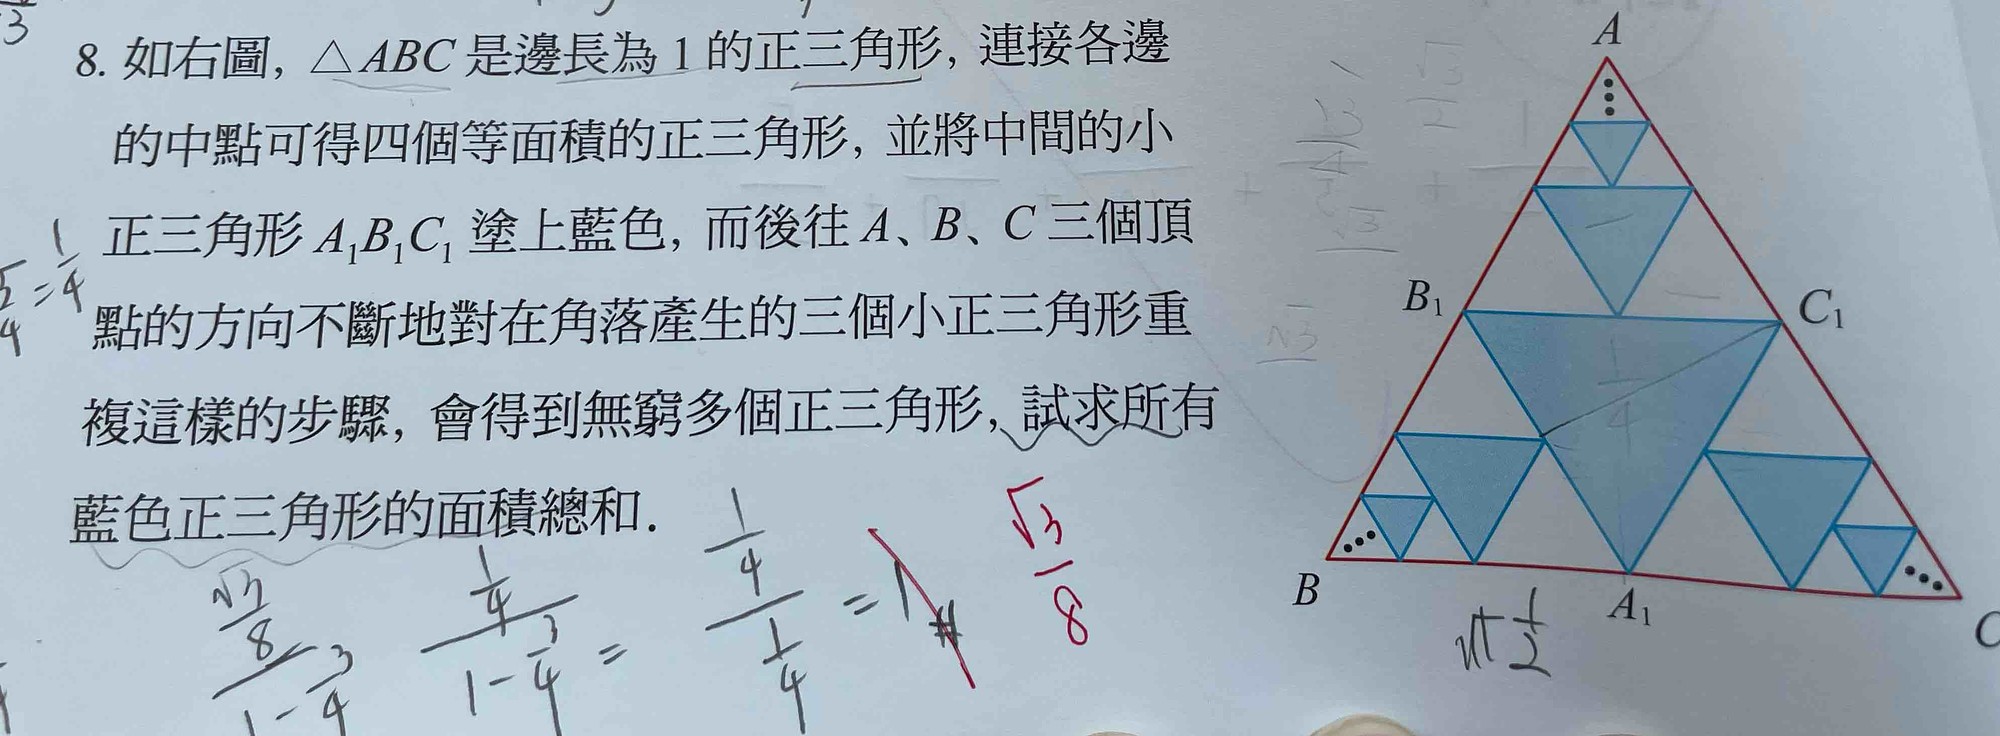 8. 如右圖, △ABC 是邊長為 1 的正三角形, 連接各邊
的中點可得四個等面積的正三角形, 並將中間的小
正三角形 A₁B₁C₁ 塗上藍色, 而後往 A、B、C 三個頂
點的方向不斷地對在角落產生的三個小正三角形重
複這樣的步驟, 會得到無窮多個正三角形, 試求所有
藍色正三角形的面積總和.
A
B₁
C₁
B
A₁
C
1/4
= 1/4
(√3/8)/(1-3/4)
(1/4)/(1-3/4) = (1/4)/(1/4) = 1 #
√3/8
1/2